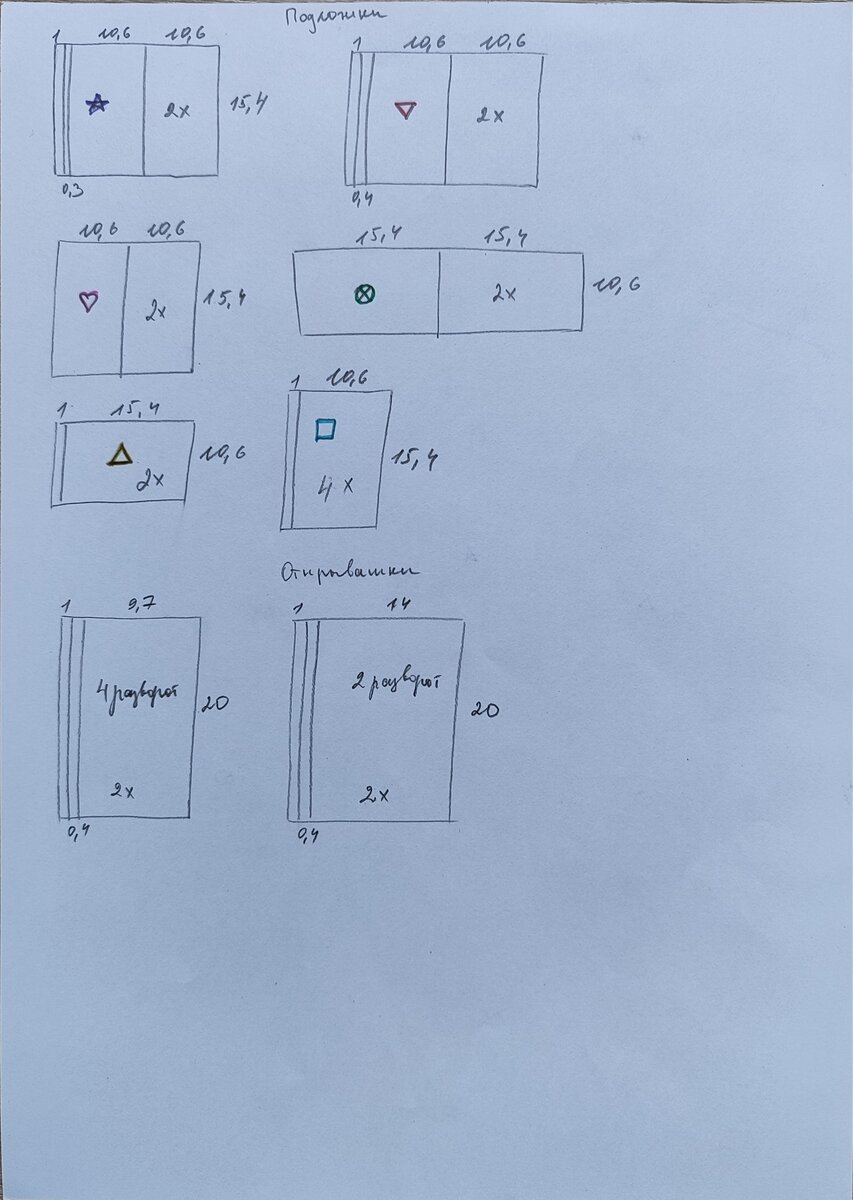 Подложки
1 10,6 10,6
2х
15,4
0,3
1 10,6 10,6
2х
0,4
10,6 10,6
2х
15,4
15,4 15,4
2х
10,6
1 15,4
2х
10,6
1 10,6
4 х
15,4
Открывашки
1 9,7
4 разворот
20
2х
0,4
1 14
2 разворот
20
2х
0,4